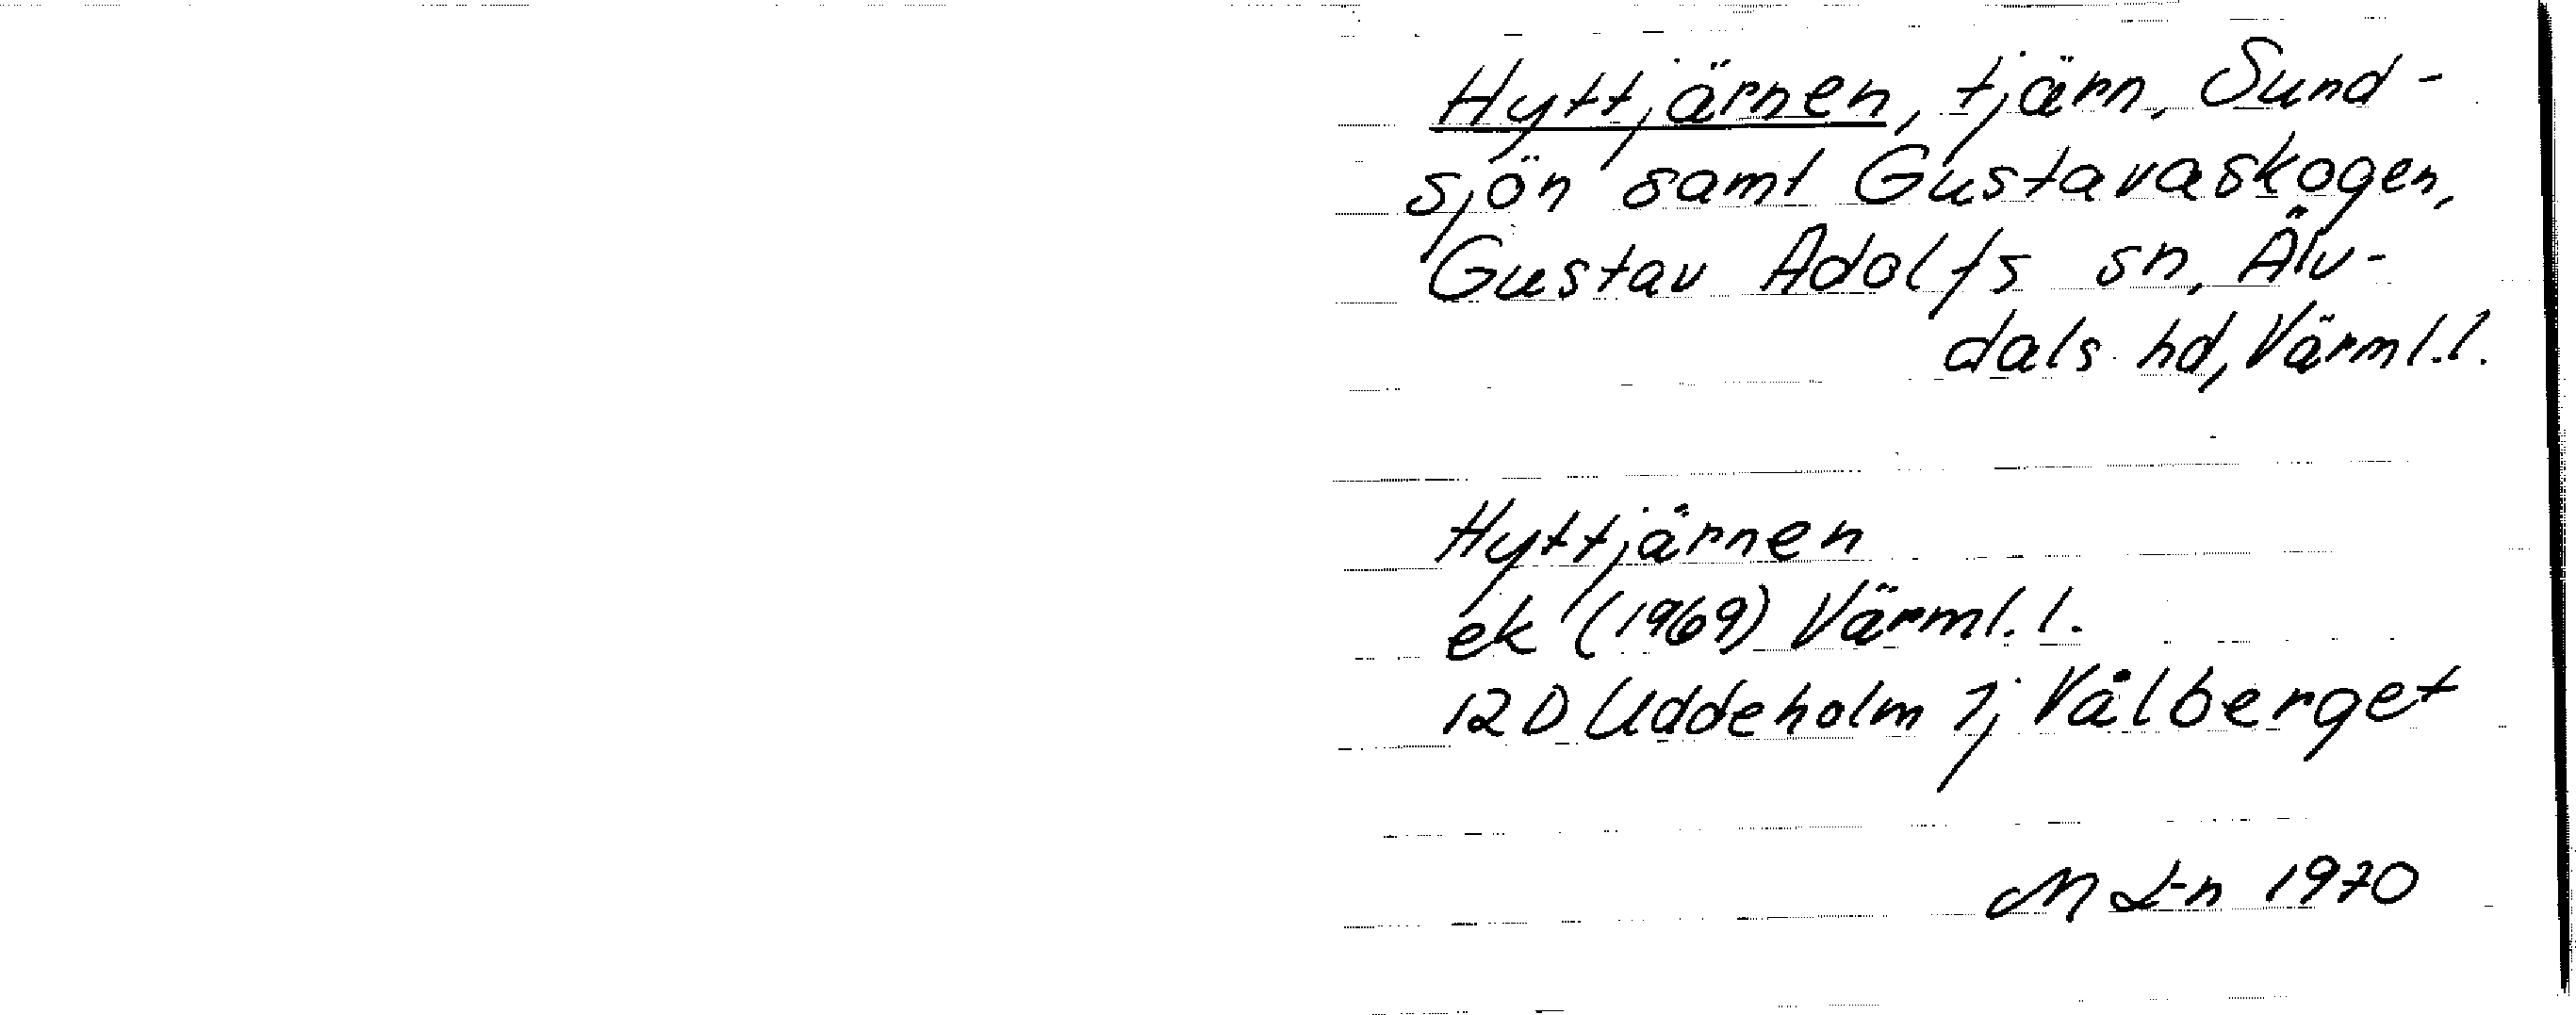 Hyttjärnen, tjärn, Sund-
sjön samt Gustavaskogen,
Gustav Adolfs sn, Älv-
dals hd, Värml.l.
Hyttjärnen
ek (1969) Värml.l.
12D Uddeholm 1j Vålberget
M L-n 1970